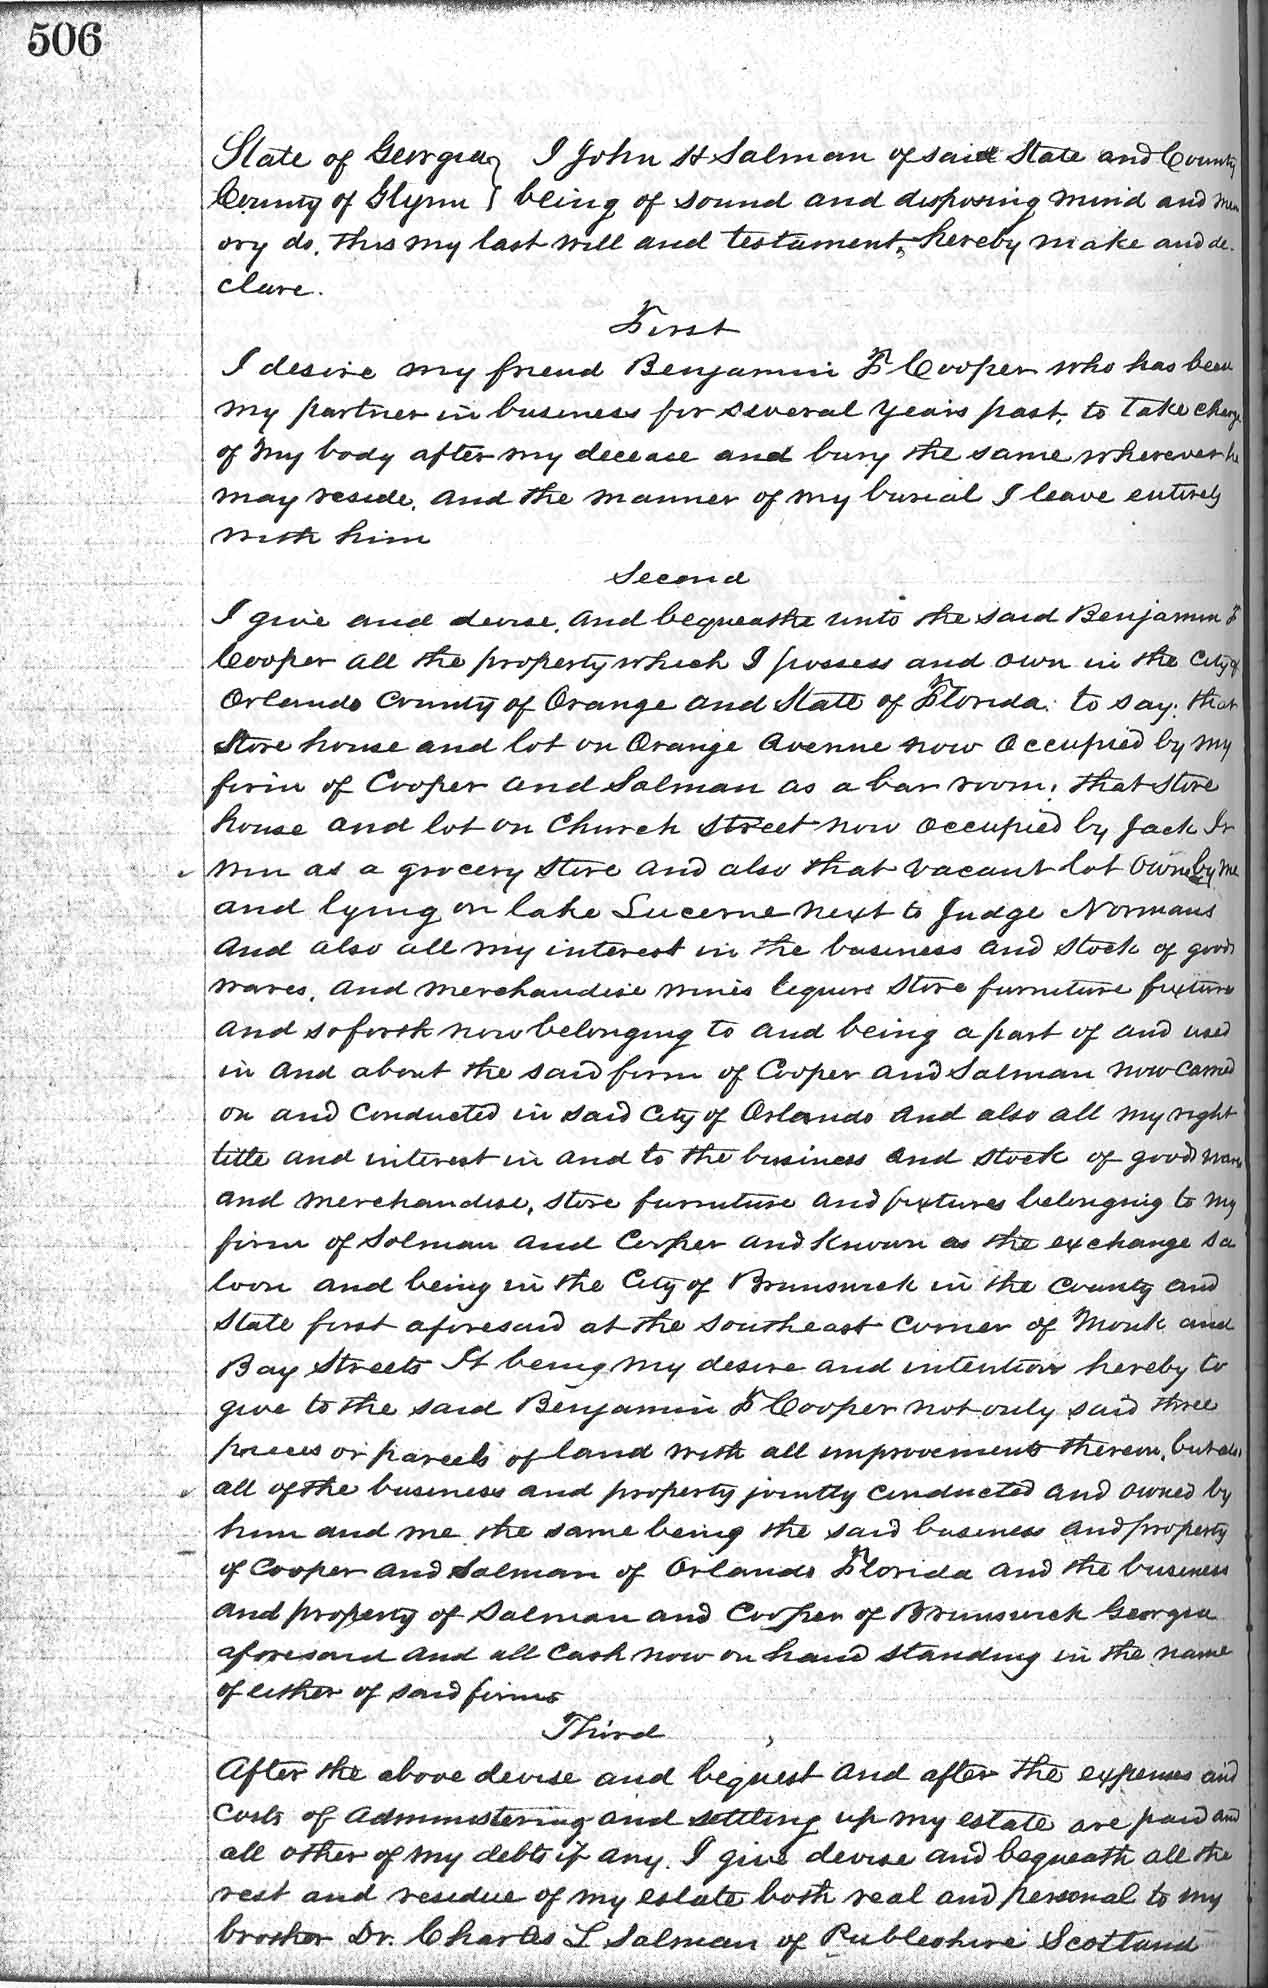 506
State of Georgia } I John H Salman of said State and County
County of Glynn } being of sound and disposing mind and mem
ory do, this my last will and testament, hereby make and de-
clare.
First
I desire my friend Benjamin F Cooper who has been
my partner in business for several years past, to take charge
of my body after my decease and bury the same wherever he
may reside, and the manner of my burial I leave entirely
with him
Second
I give and devise, and bequeathe unto the said Benjamin F
Cooper all the property which I possess and own in the City of
Orlando County of Orange and State of Florida: to say: that
Store house and lot on Orange Avenue now occupied by my
firm of Cooper and Salman as a bar room; that store
house and lot on Church Street now occupied by Jack Ir
win as a grocery store and also that vacant lot own by me
and lying on lake Lucerne next to Judge Normans
and also all my interest in the business and stock of goods
wares, and merchandise wines liquors store furniture fixtures
and so forth now belonging to and being a part of and used
in and about the said firm of Cooper and Salman now carried
on and conducted in said City of Orlando and also all my right
title and interest in and to the business and stock of goods wares
and merchandise, store furniture and fixtures belonging to my
firm of Salman and Cooper and known as the exchange sa
loon and being in the City of Brunswick in the County and
State first aforesaid at the southeast corner of Monk and
Bay Streets It being my desire and intention hereby to
give to the said Benjamin F Cooper not only said three
pieces or parcels of land with all improvements thereon, but also
all of the business and property jointly conducted and owned by
him and me the same being the said business and property
of Cooper and Salman of Orlando Florida and the business
and property of Salman and Cooper of Brunswick Georgia
aforesaid and all cash now on hand standing in the name
of either of said firms
Third
After the above devise and bequest and after the expenses and
costs of administering and settling up my estate are paid and
all other of my debts if any. I give devise and bequeath all the
rest and residue of my estate both real and personal to my
brother Dr. Charles L Salman of Scotland